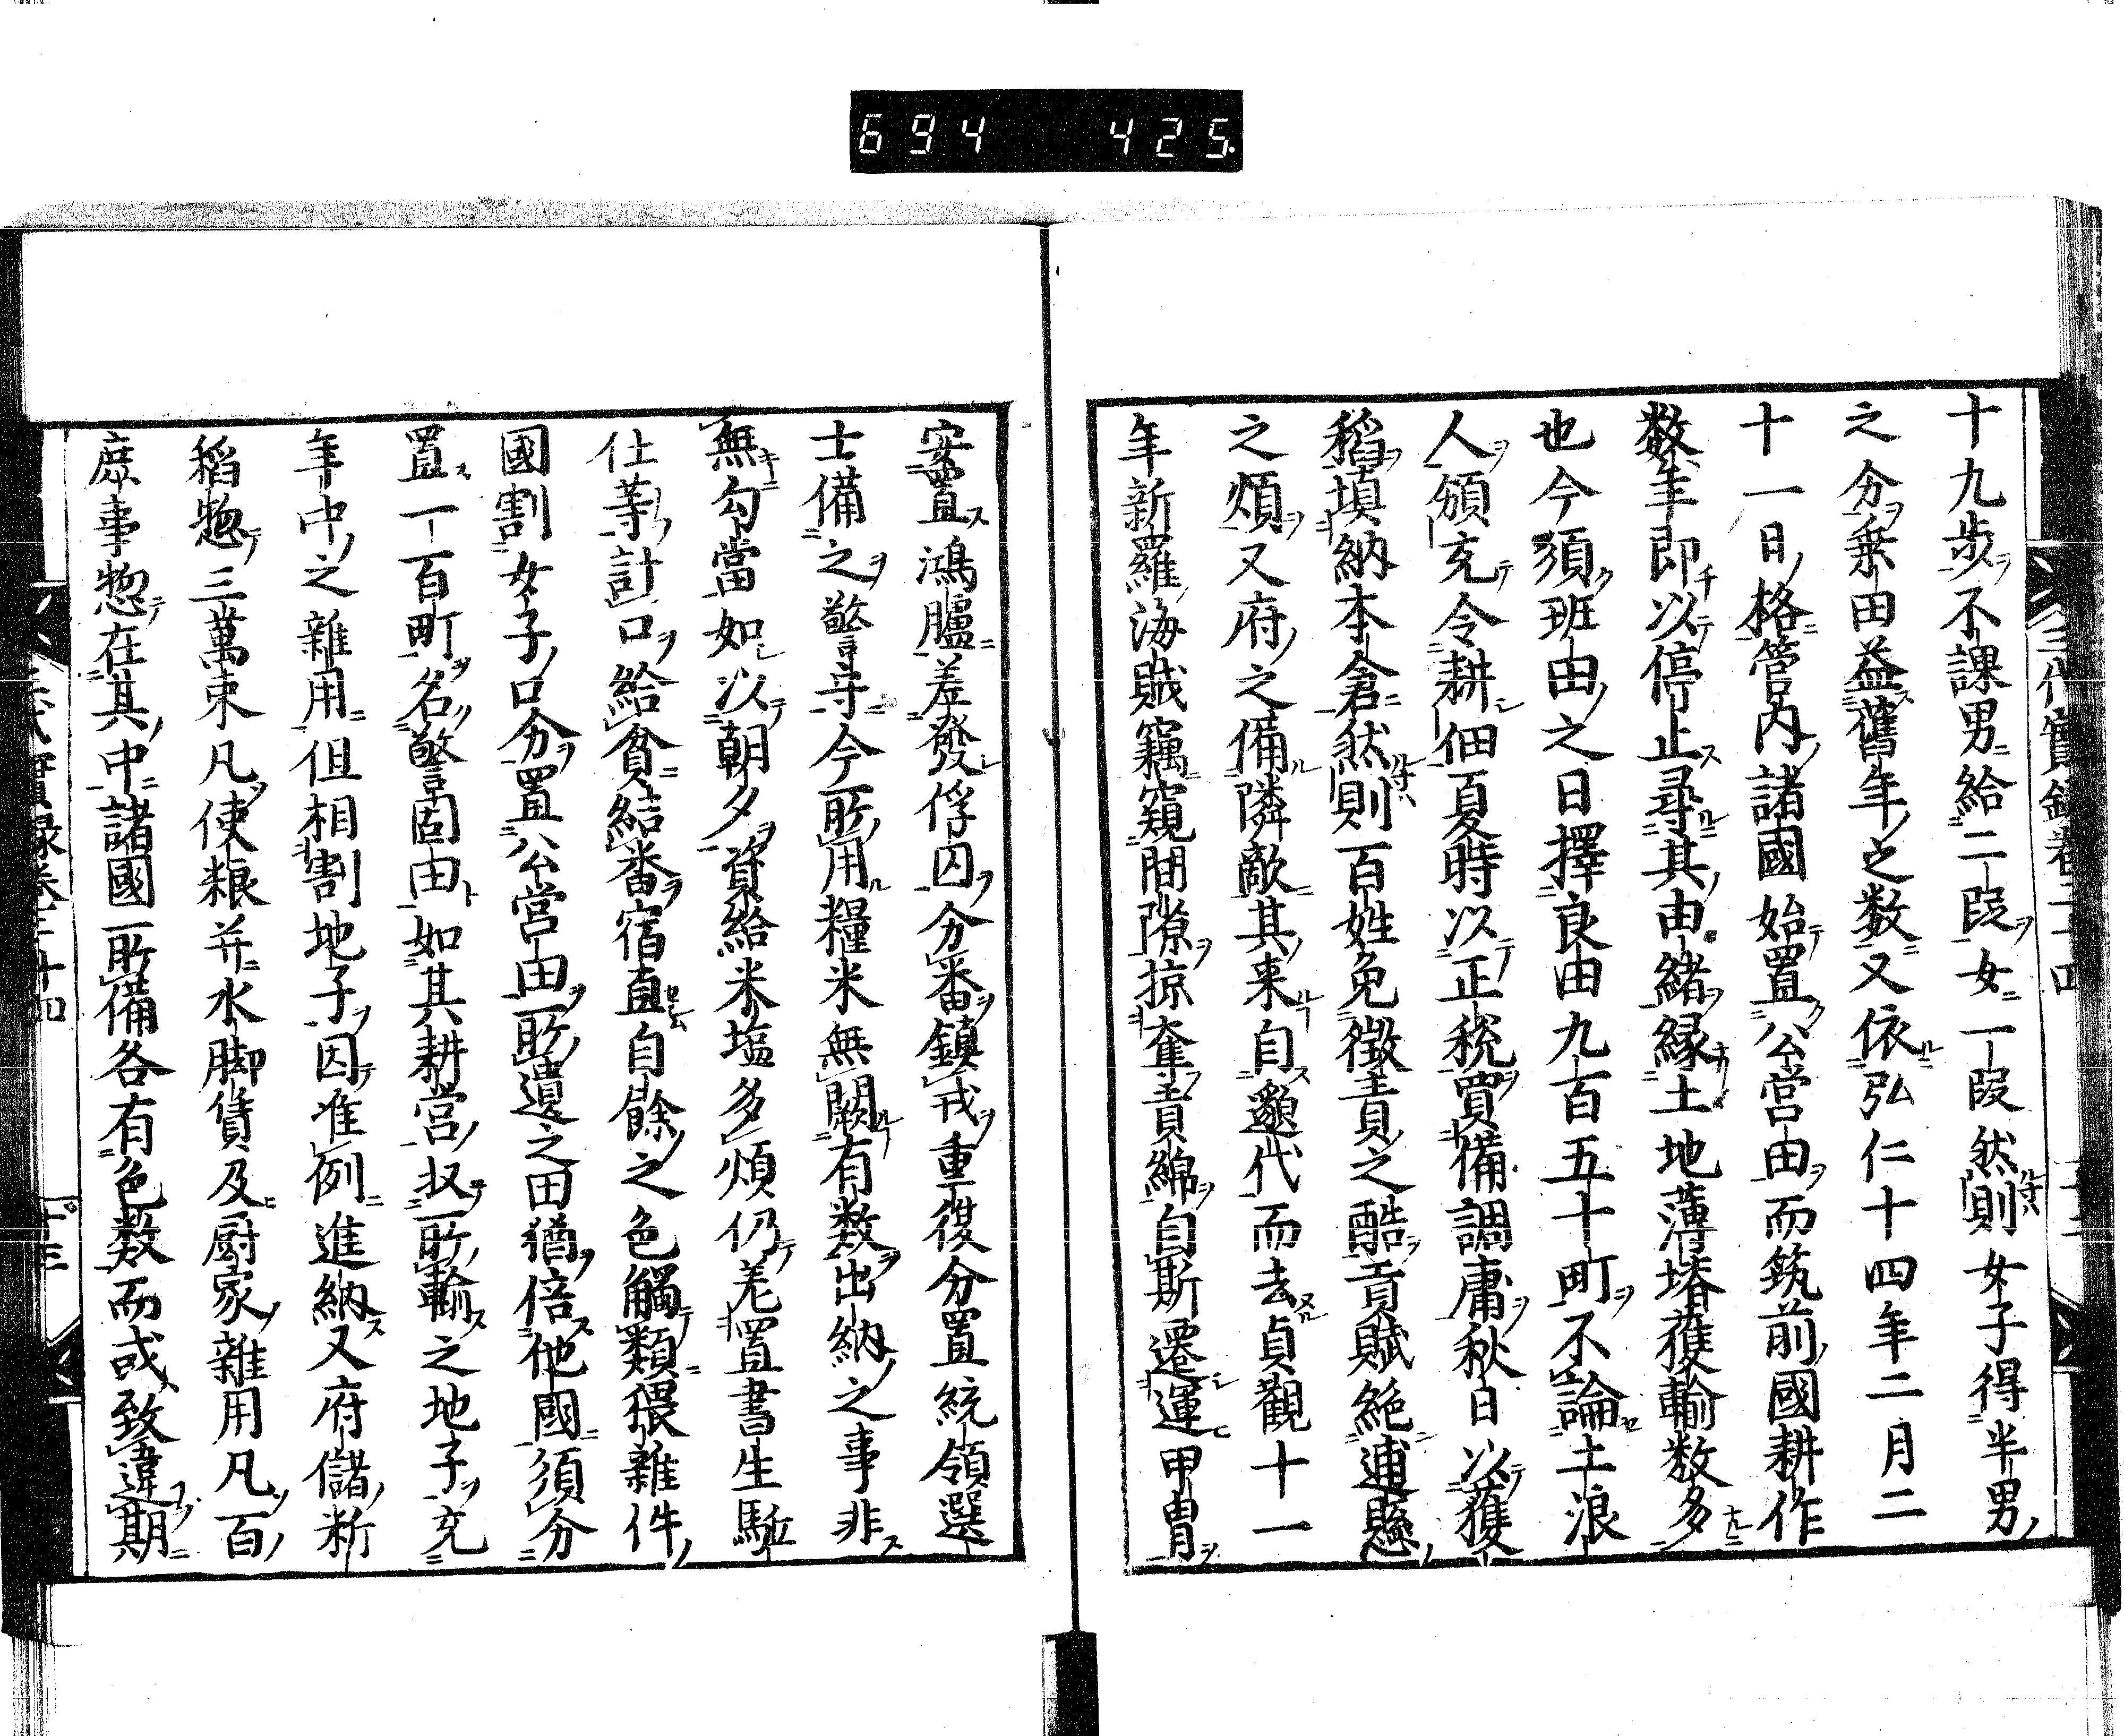 694 425
十九歩不課男給二段女一段然則女子得半男
之分乗田益舊年之数又依弘仁十四年二月二
十一日格管内諸國始置公営田而筑前國耕作
数年即以停止尋其由緒縁土地薄堉穫輸数多
也今須班田之日擇良田九百五十町不論土浪
人頒充令耕佃夏時以正税買備調庸秋日以穫
稻填納本倉然則百姓免徴責之酷貢賦絶逋懸
之煩又府之備隣敵其来自邈代而去貞觀十一
年新羅海賊竊窺間隙掠奪貢綿自斯遷運甲冑
安置鴻臚差發俘囚分番鎮戎重復分置統領選
士備之警守今所用糧米無闕有数出納之事非
無勾當如以朝夕資給米塩多煩仍差置書生駈
仕等計口給食結番宿直自餘之色觸類猥雜伴
國割女子口分置公営田所遺之田猶倍他國須分
置一百町名警固田如其耕営収所輸之地子充
年中之雜用但相割地子因准例進納又府儲新
稻惣三萬束凡使粮并水脚賃及厨家雜用凡百
庶事惣在其中諸國所備各有色数而或致違期
三代實録巻二十四